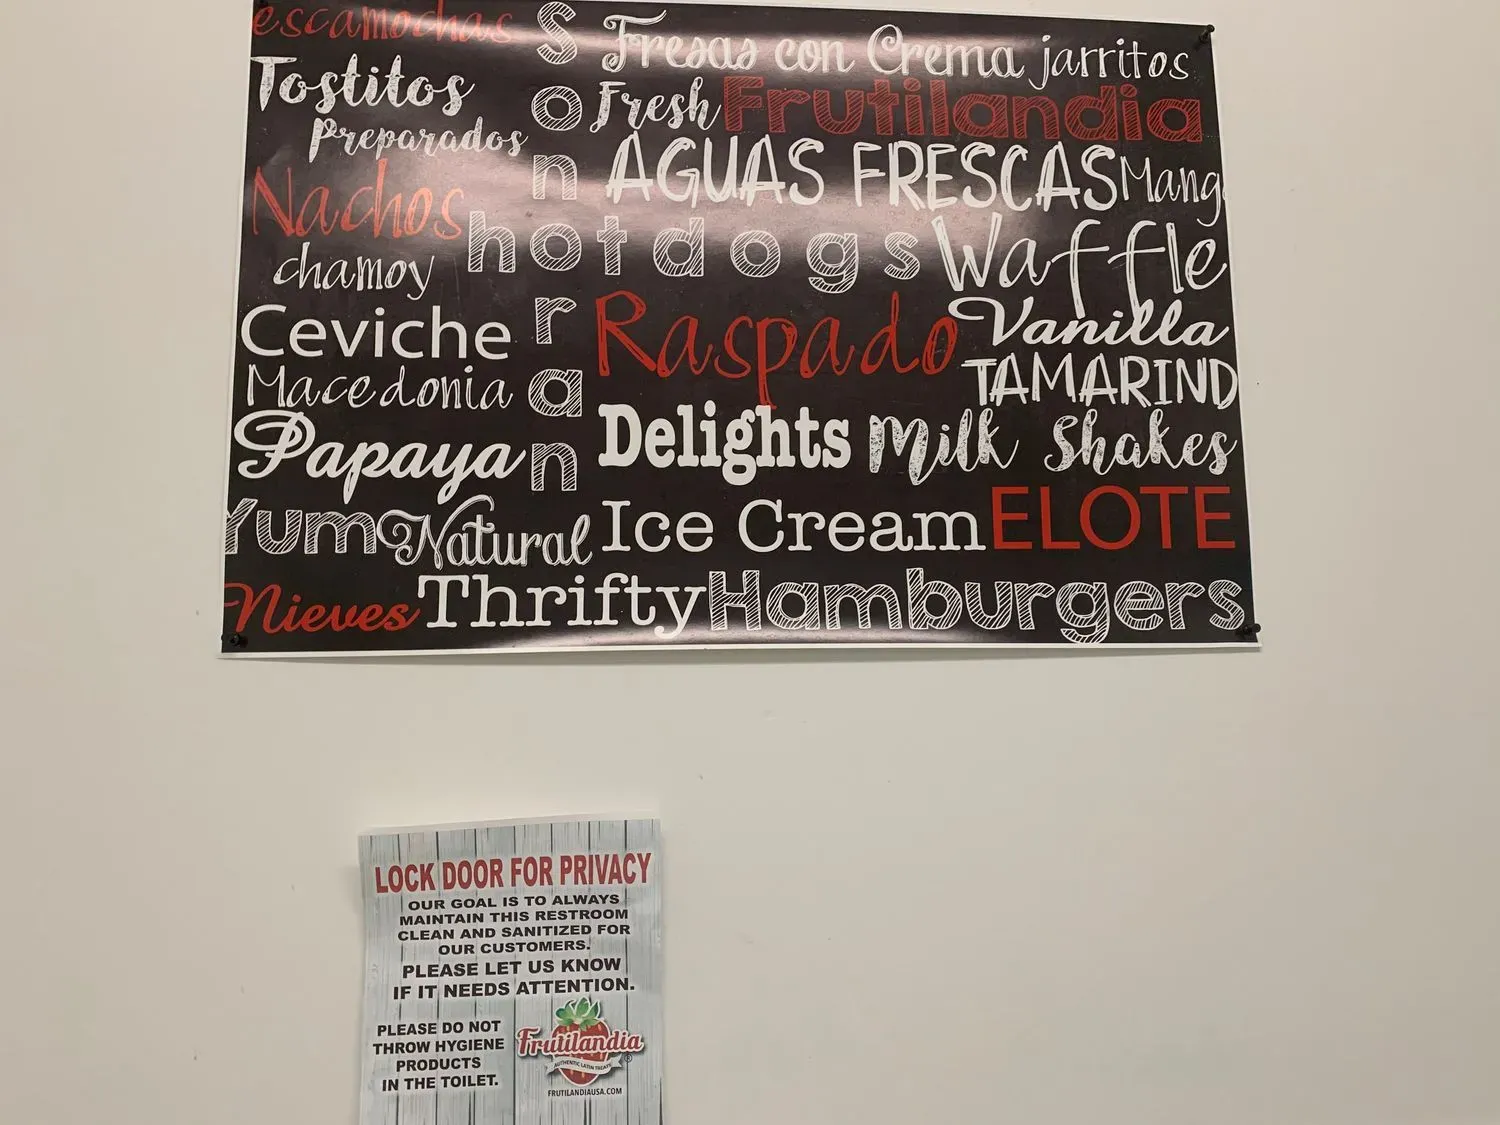 escamochas
Tostitos
Preparados
Nachos
chamoy
Ceviche
Macedonia
Papaya
Yum Natural
Nieves Thrifty Hamburgers
Sonoran
Fresas con Crema jarritos
Fresh Frutilandia
AGUAS FRESCAS Mang
hotdogs Waffle
Raspado Vanilla
TAMARIND
Delights Milk Shakes
Ice Cream ELOTE
LOCK DOOR FOR PRIVACY
OUR GOAL IS TO ALWAYS
MAINTAIN THIS RESTROOM
CLEAN AND SANITIZED FOR
OUR CUSTOMERS.
PLEASE LET US KNOW
IF IT NEEDS ATTENTION.
PLEASE DO NOT
THROW HYGIENE
PRODUCTS
IN THE TOILET.
Frutilandia
AUTHENTIC LATIN TREATS
®
FRUTILANDIAUSA.COM